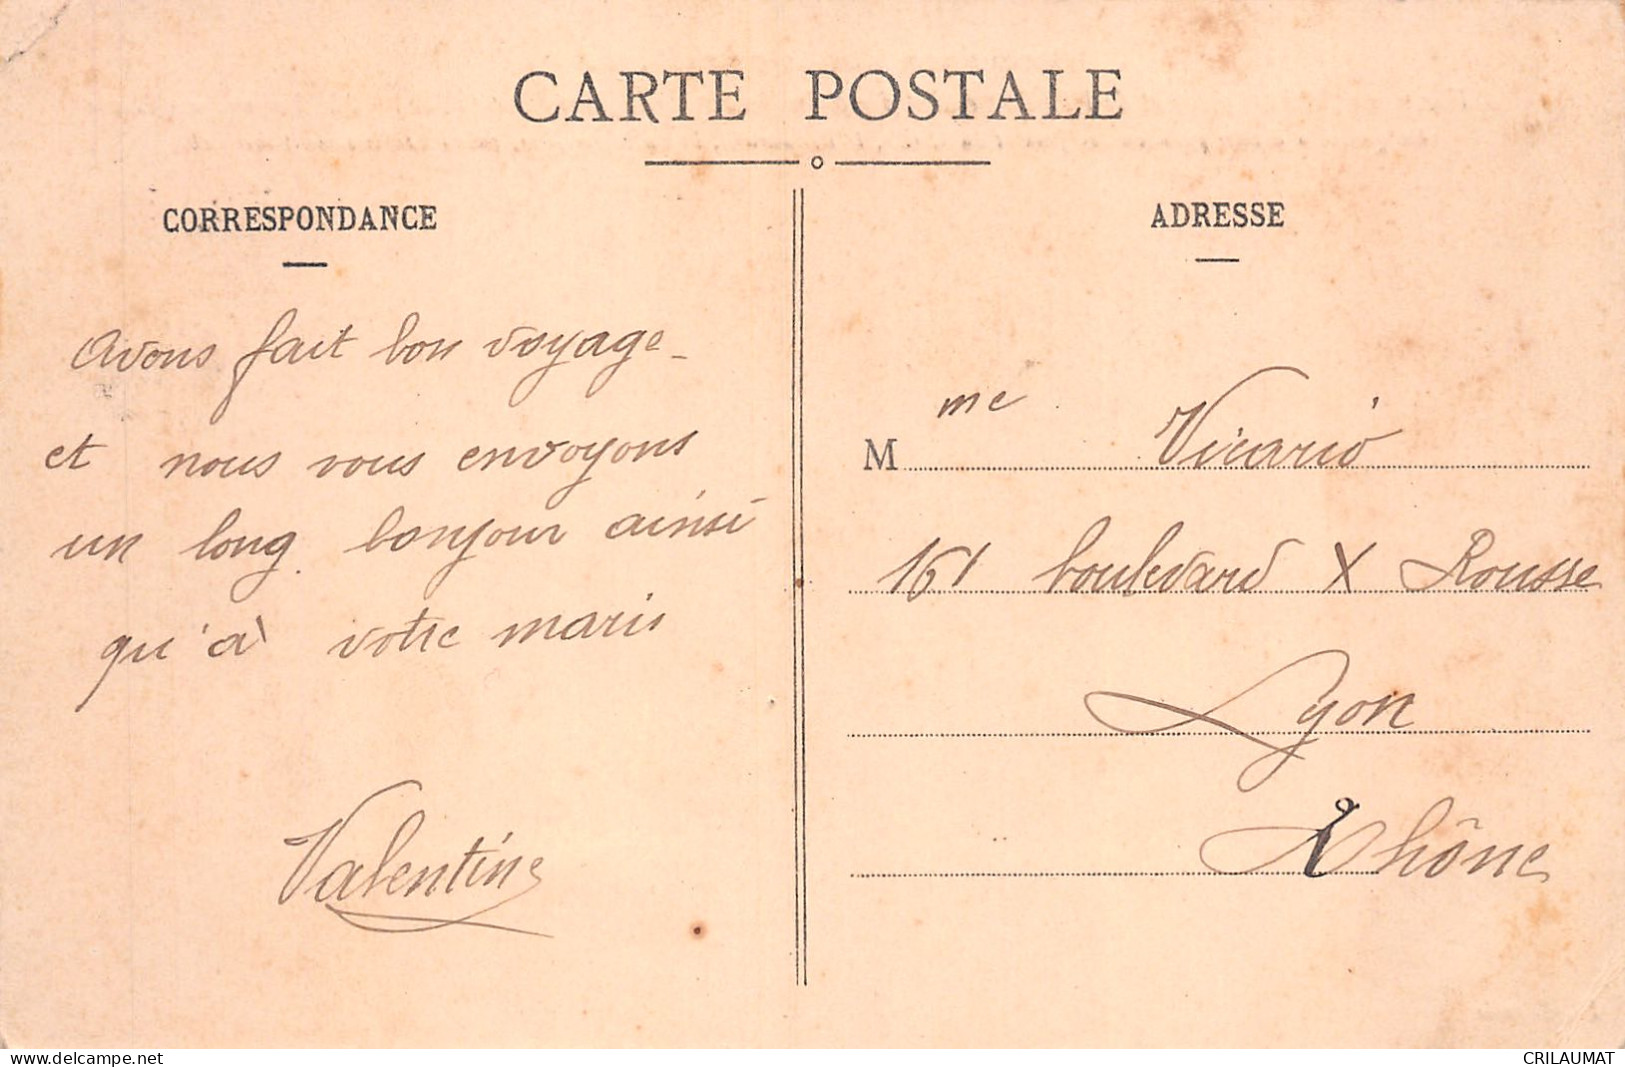 CARTE POSTALE
CORRESPONDANCE
Avons fait bon voyage -
et nous vous envoyons
un long bonjour ainsi
qu'à votre maris
Valentine
ADRESSE
Mme Vicario
161 boulevard X Rousse
Lyon
Rhône
www.delcampe.net
CRILAUMAT